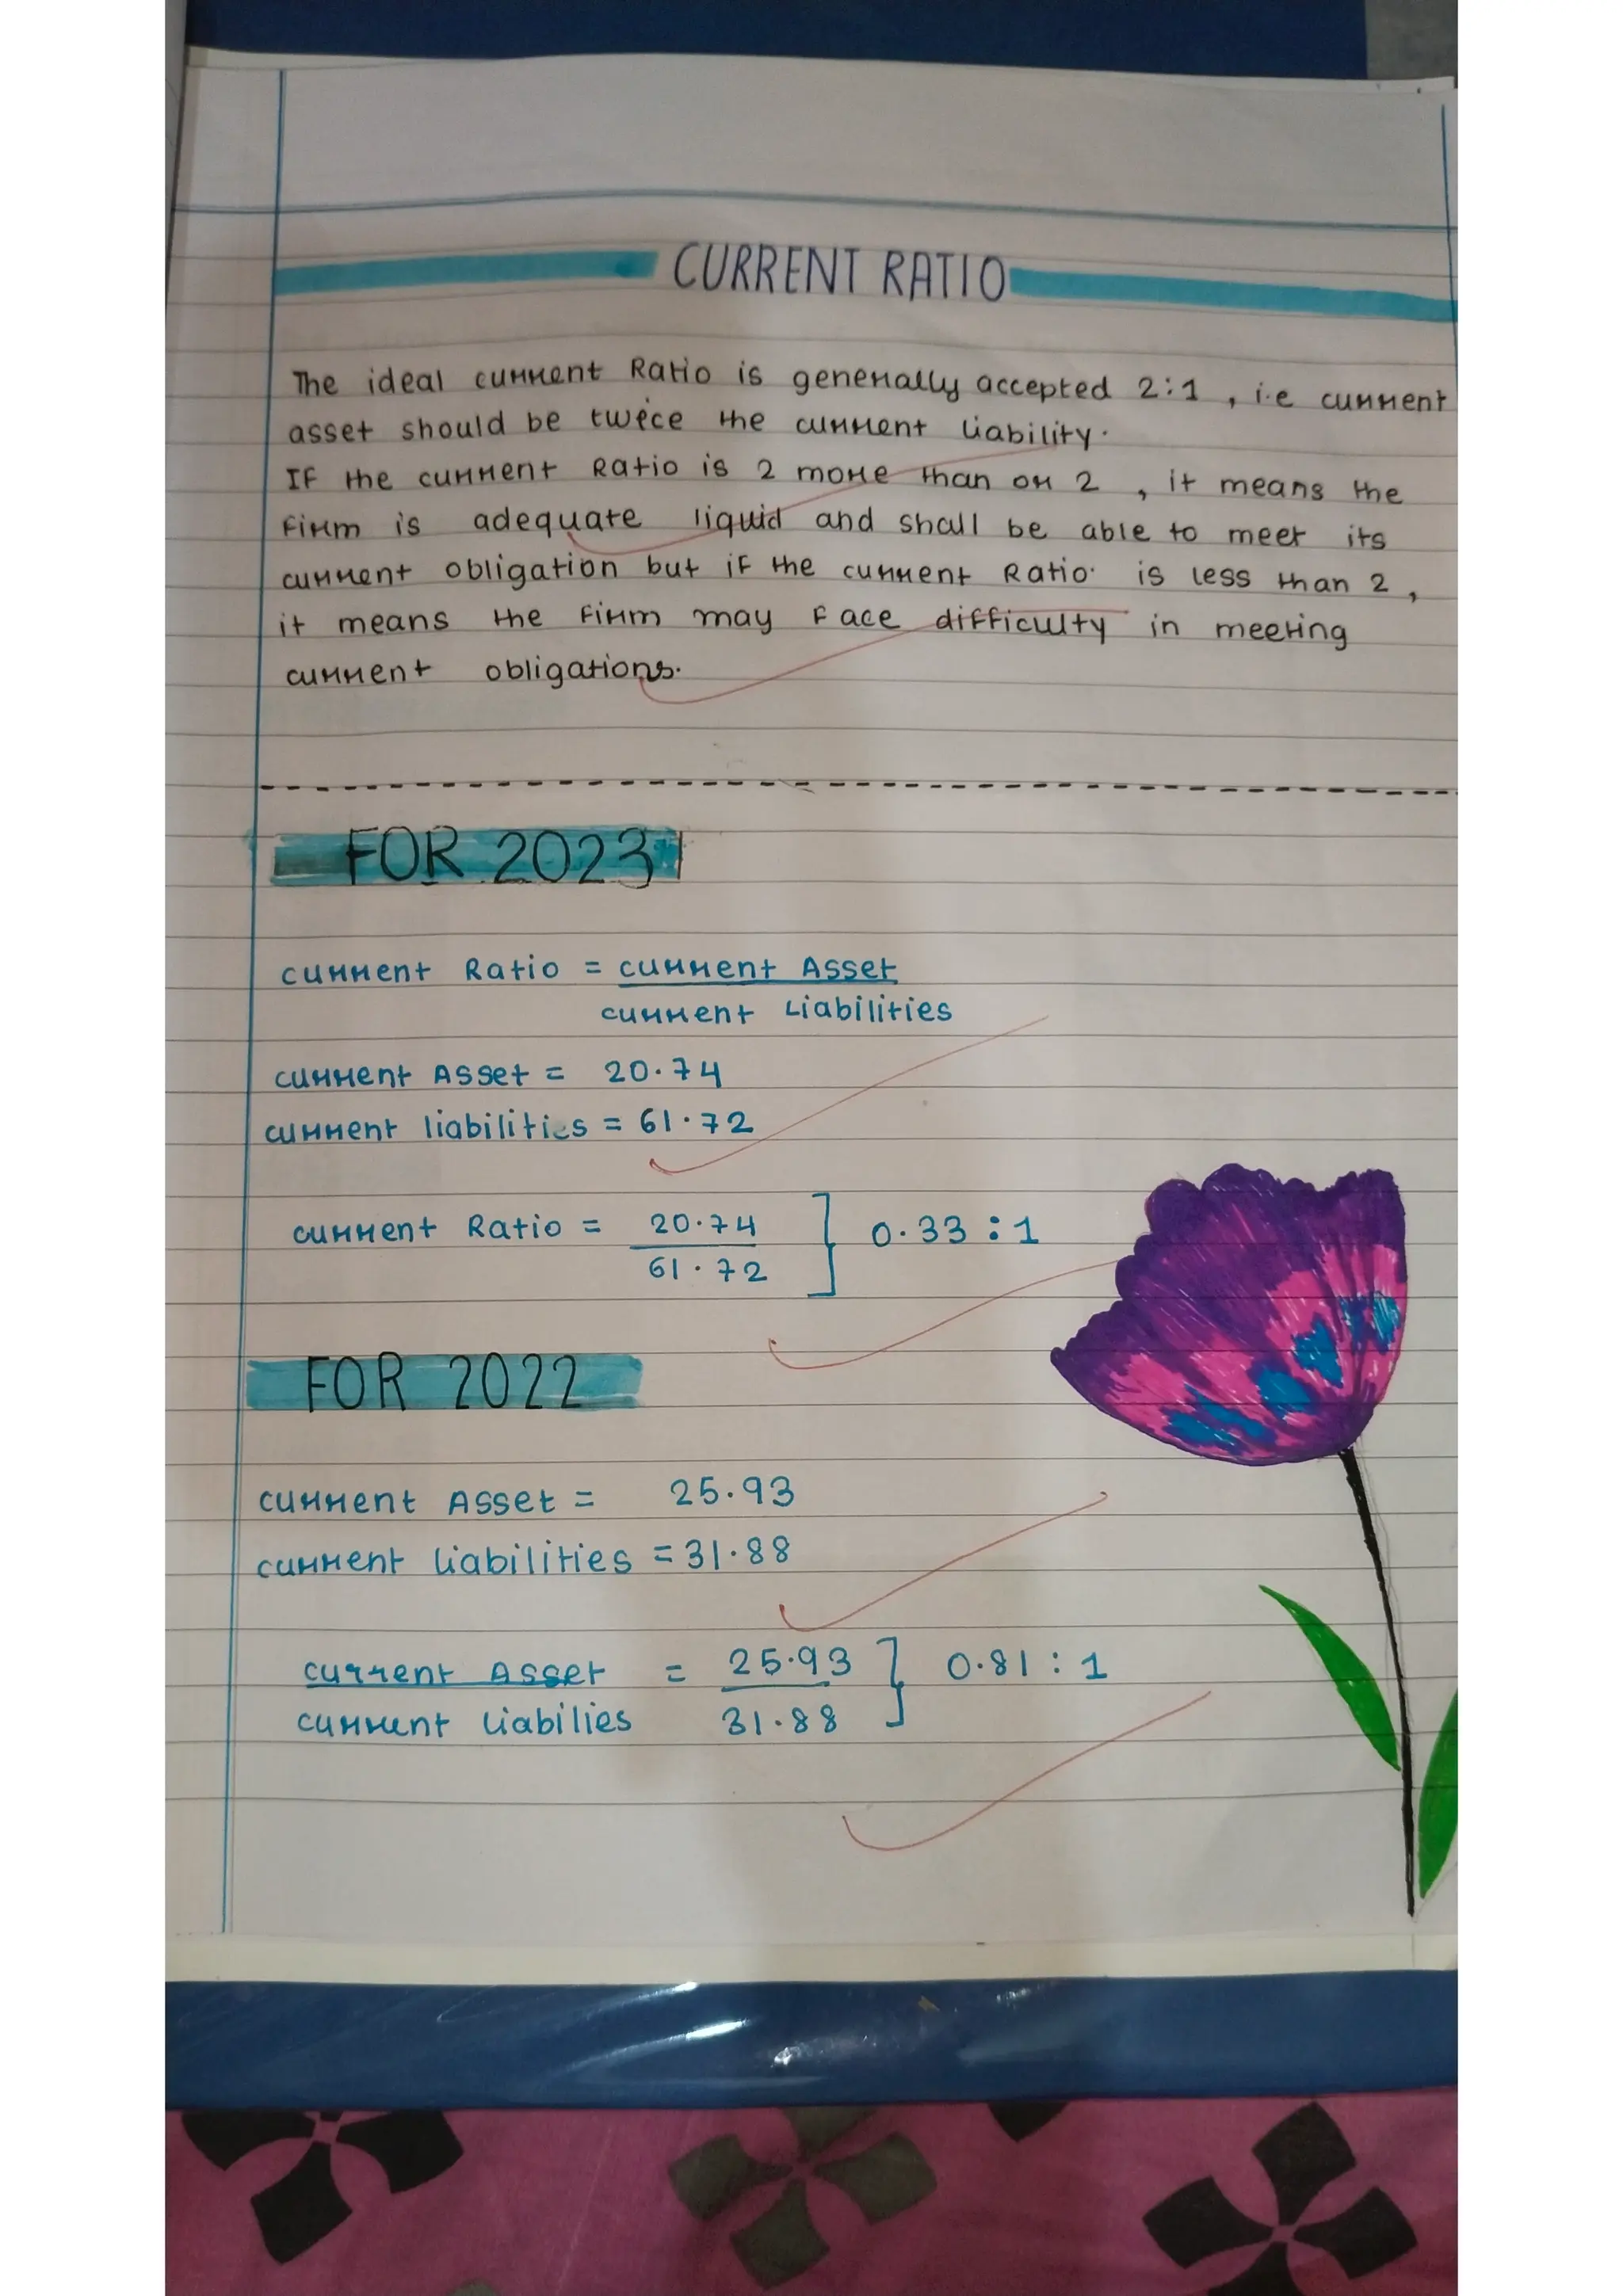 CURRENT RATIO
The ideal current Ratio is generally accepted 2:1 , i.e current
asset should be twice the current liability.
If the current Ratio is 2 more than or 2 , it means the
firm is adequate liquid and shall be able to meet its
current obligation but if the current Ratio is less than 2 ,
it means the firm may Face difficulty in meeting
current obligations.
FOR 2023
current Ratio = current Asset
current Liabilities
current Asset = 20.74
current liabilities = 61.72
current Ratio = 20.74 } 0.33 : 1
61.72
FOR 2022
current Asset = 25.93
current liabilities = 31.88
current Asset = 25.93 } 0.81 : 1
current liabilies 31.88